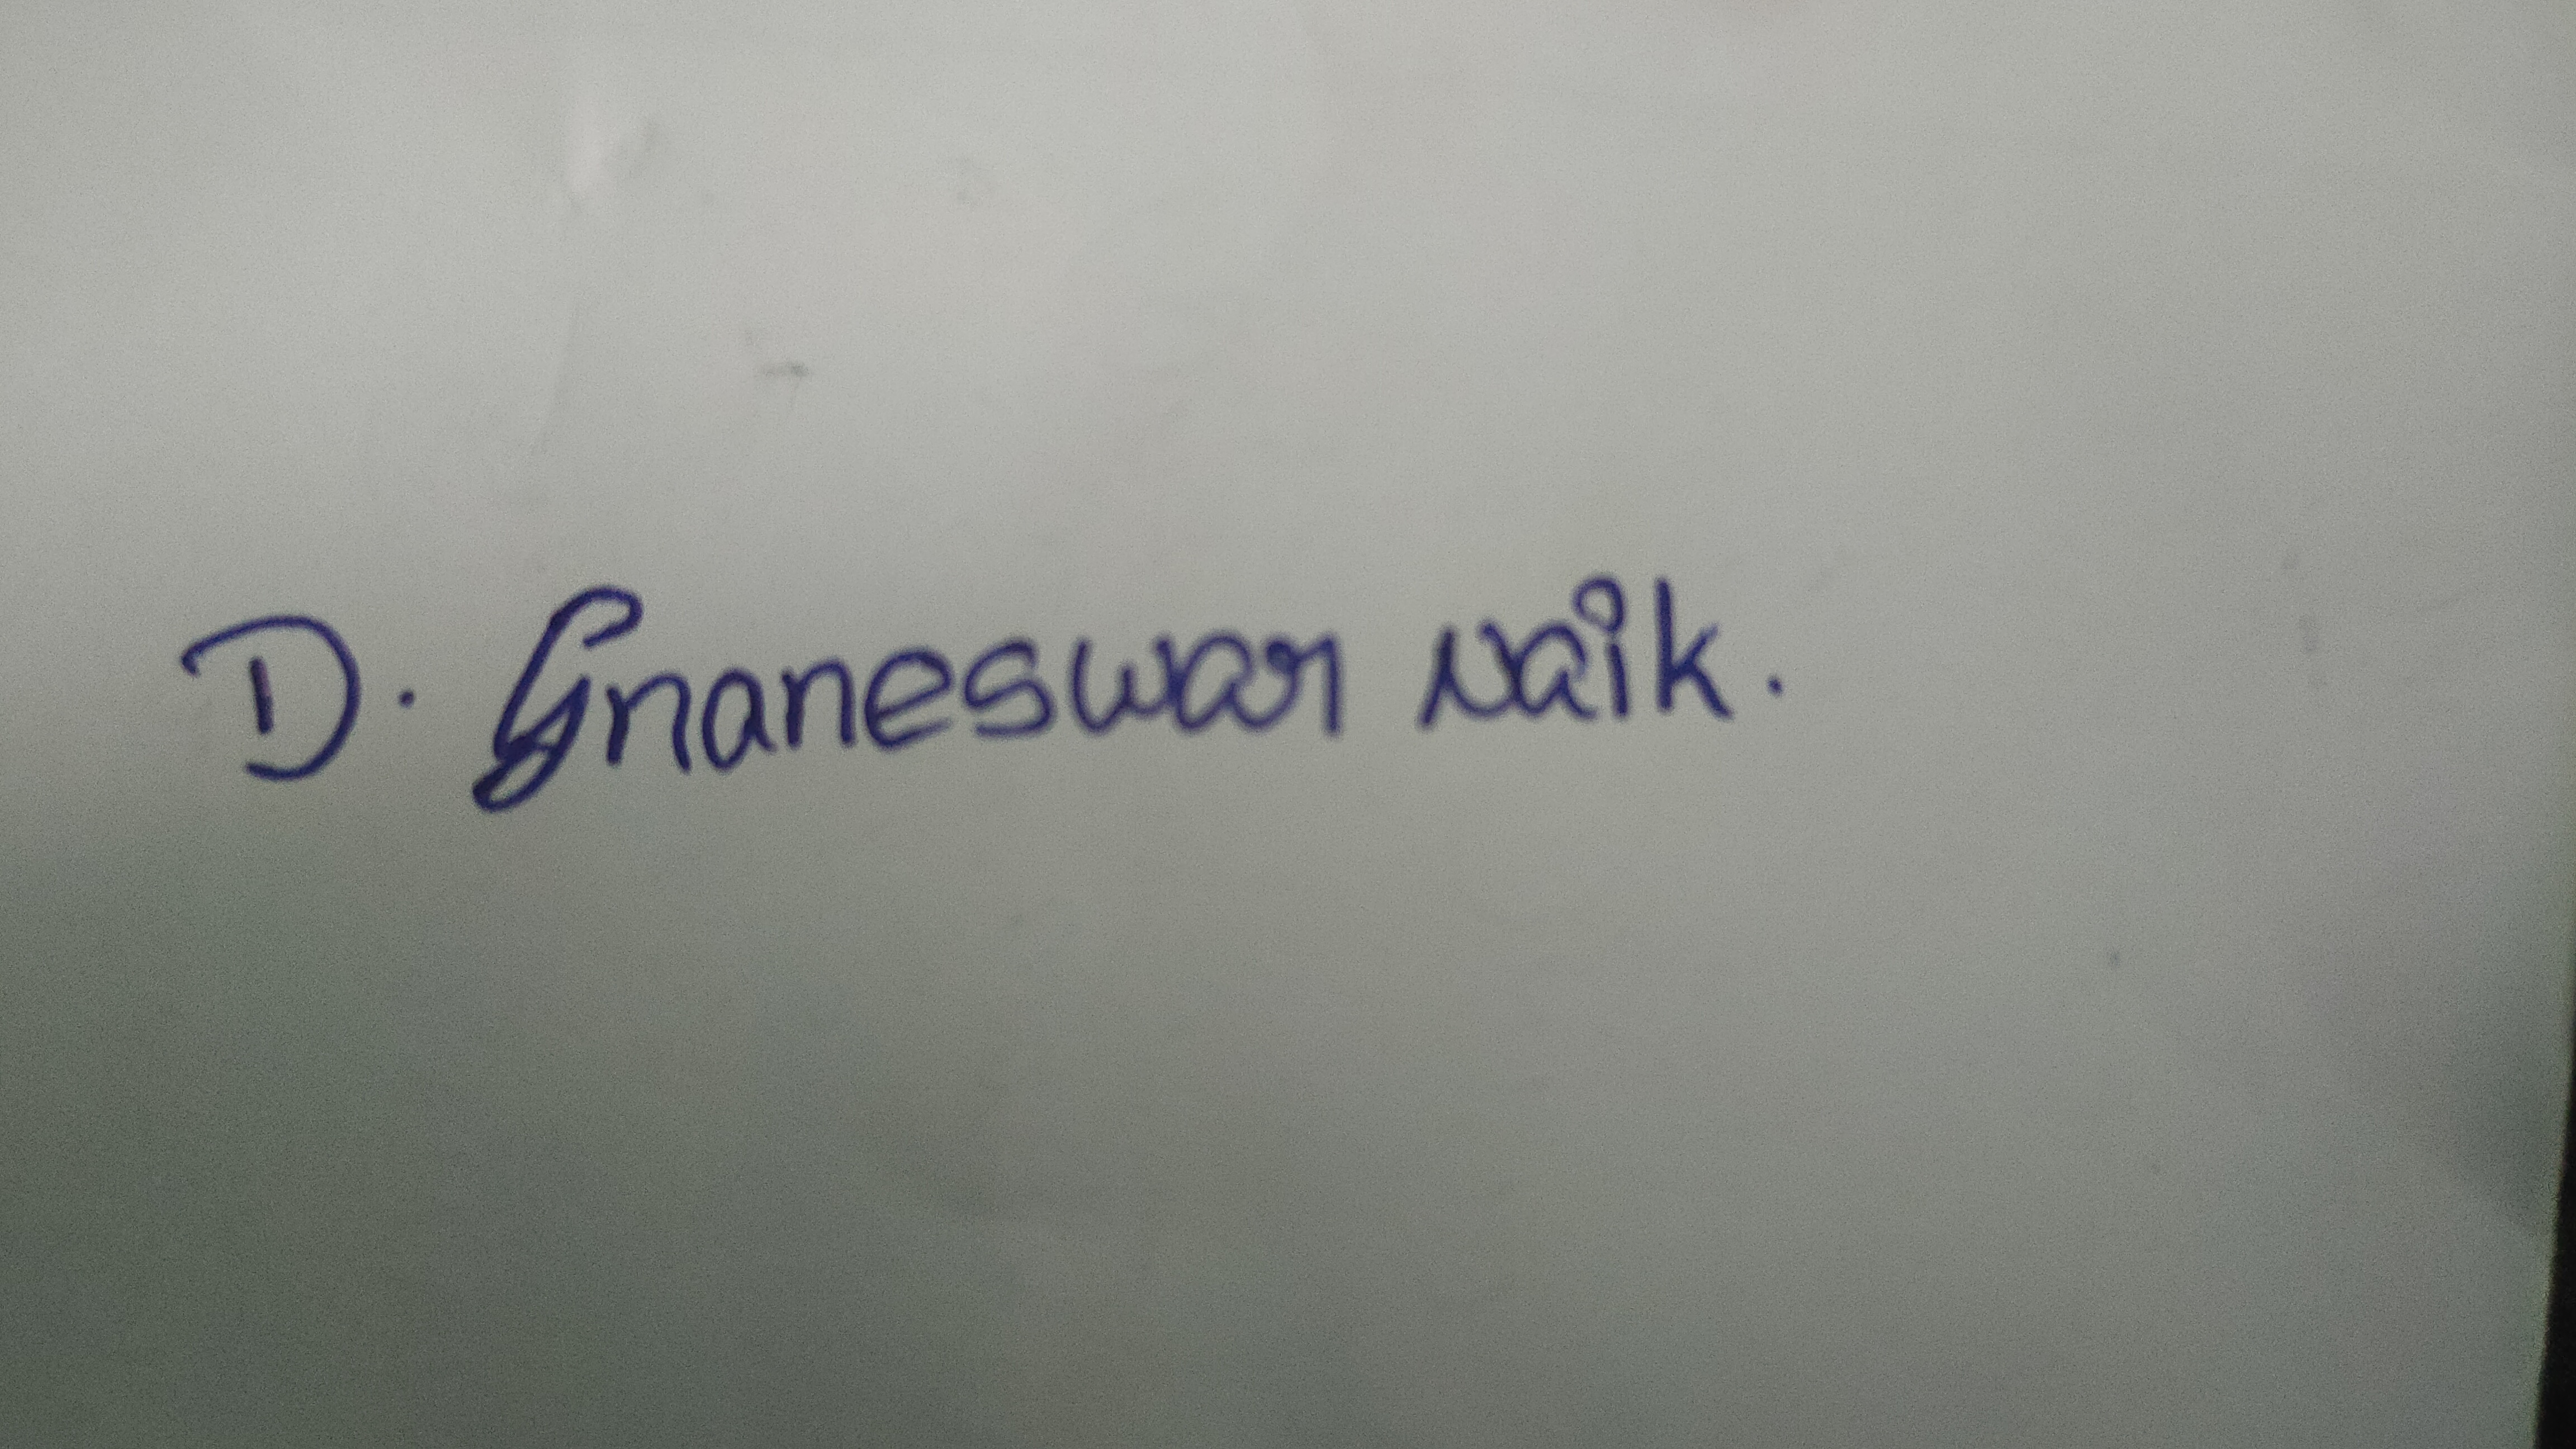 D. Gnaneswar Naik.